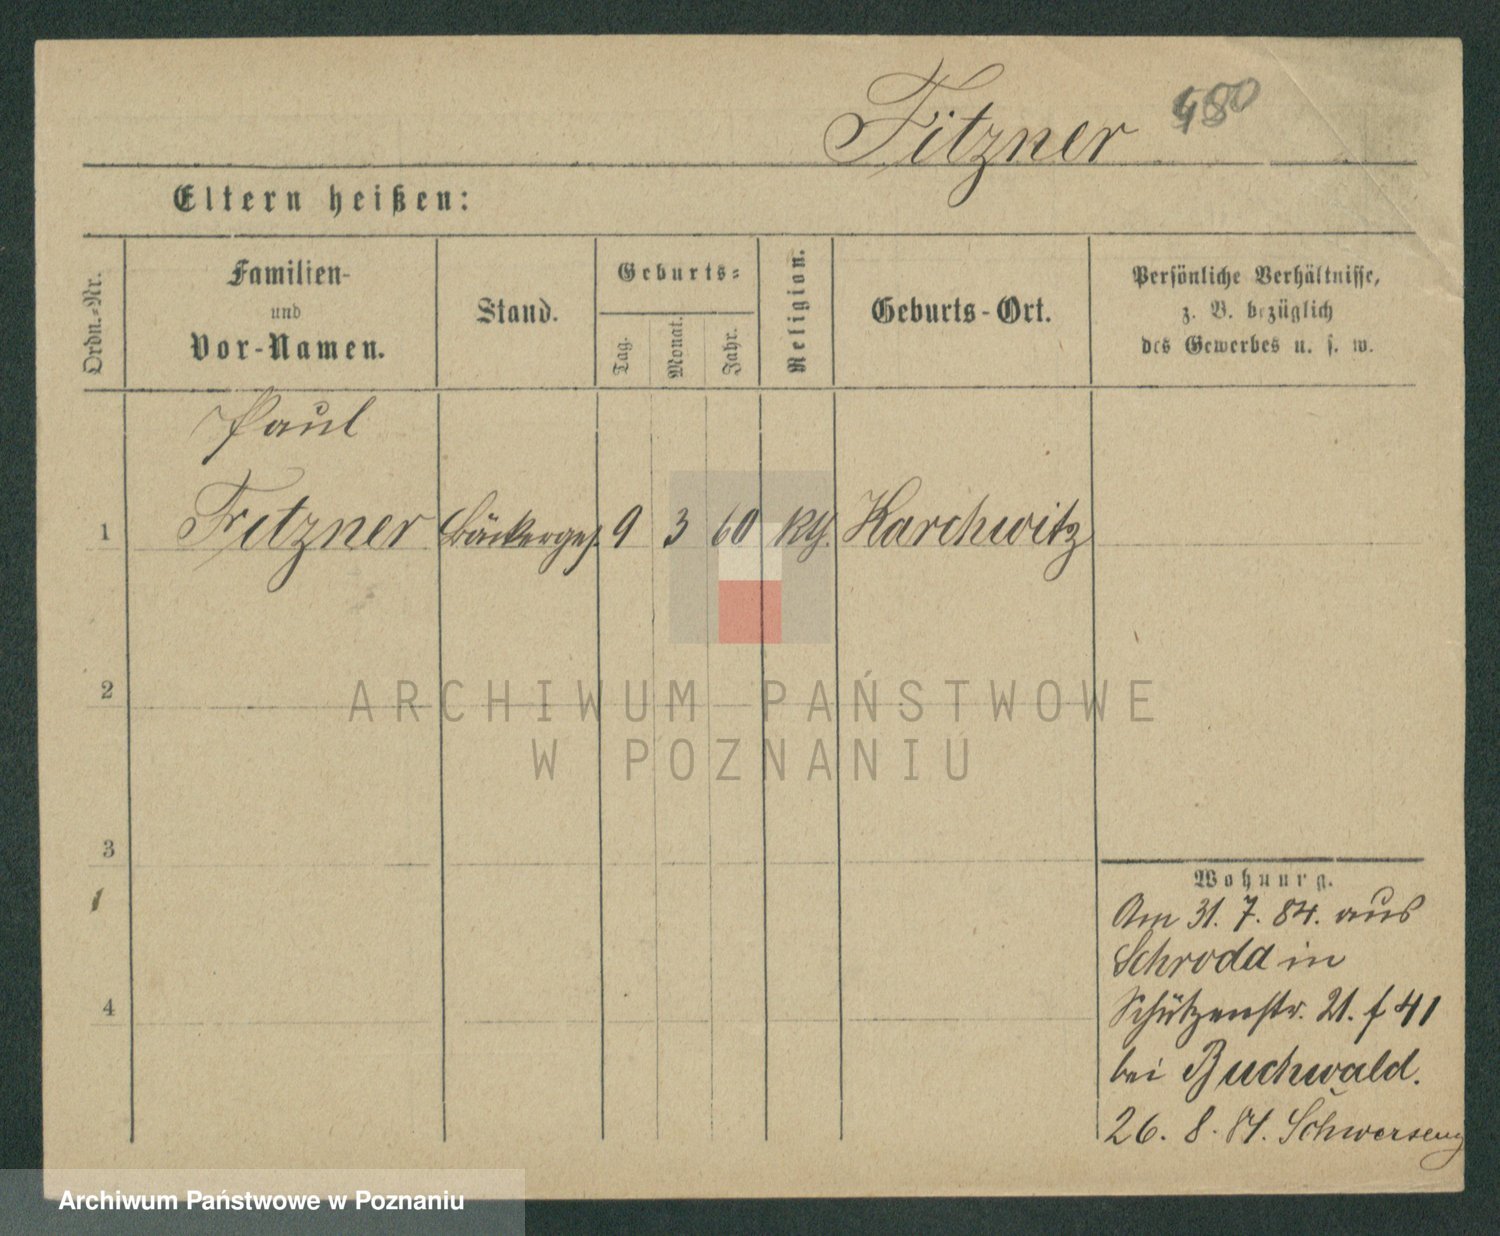 Fitzner 480
Eltern heißen:
Ordn.-Nr.
Familien-
und
Vor-Namen.
Stand.
Geburts-
Tag.
Monat.
Jahr.
Religion.
Geburts-Ort.
Persönliche Verhältnisse,
z. B. bezüglich
des Gewerbes u. s. w.
Paul
1 Fitzner Bäckerges. 9 3 60 Karchwitz
2
ARCHIWUM PAŃSTWOWE
W POZNANIU
3
Wohnung.
Am 31. 7. 84. aus
Schroda in
4
Schützenstr. 21. f 41
bei Buchwald.
26. 8. 84. Schwersenz
Archiwum Państwowe w Poznaniu